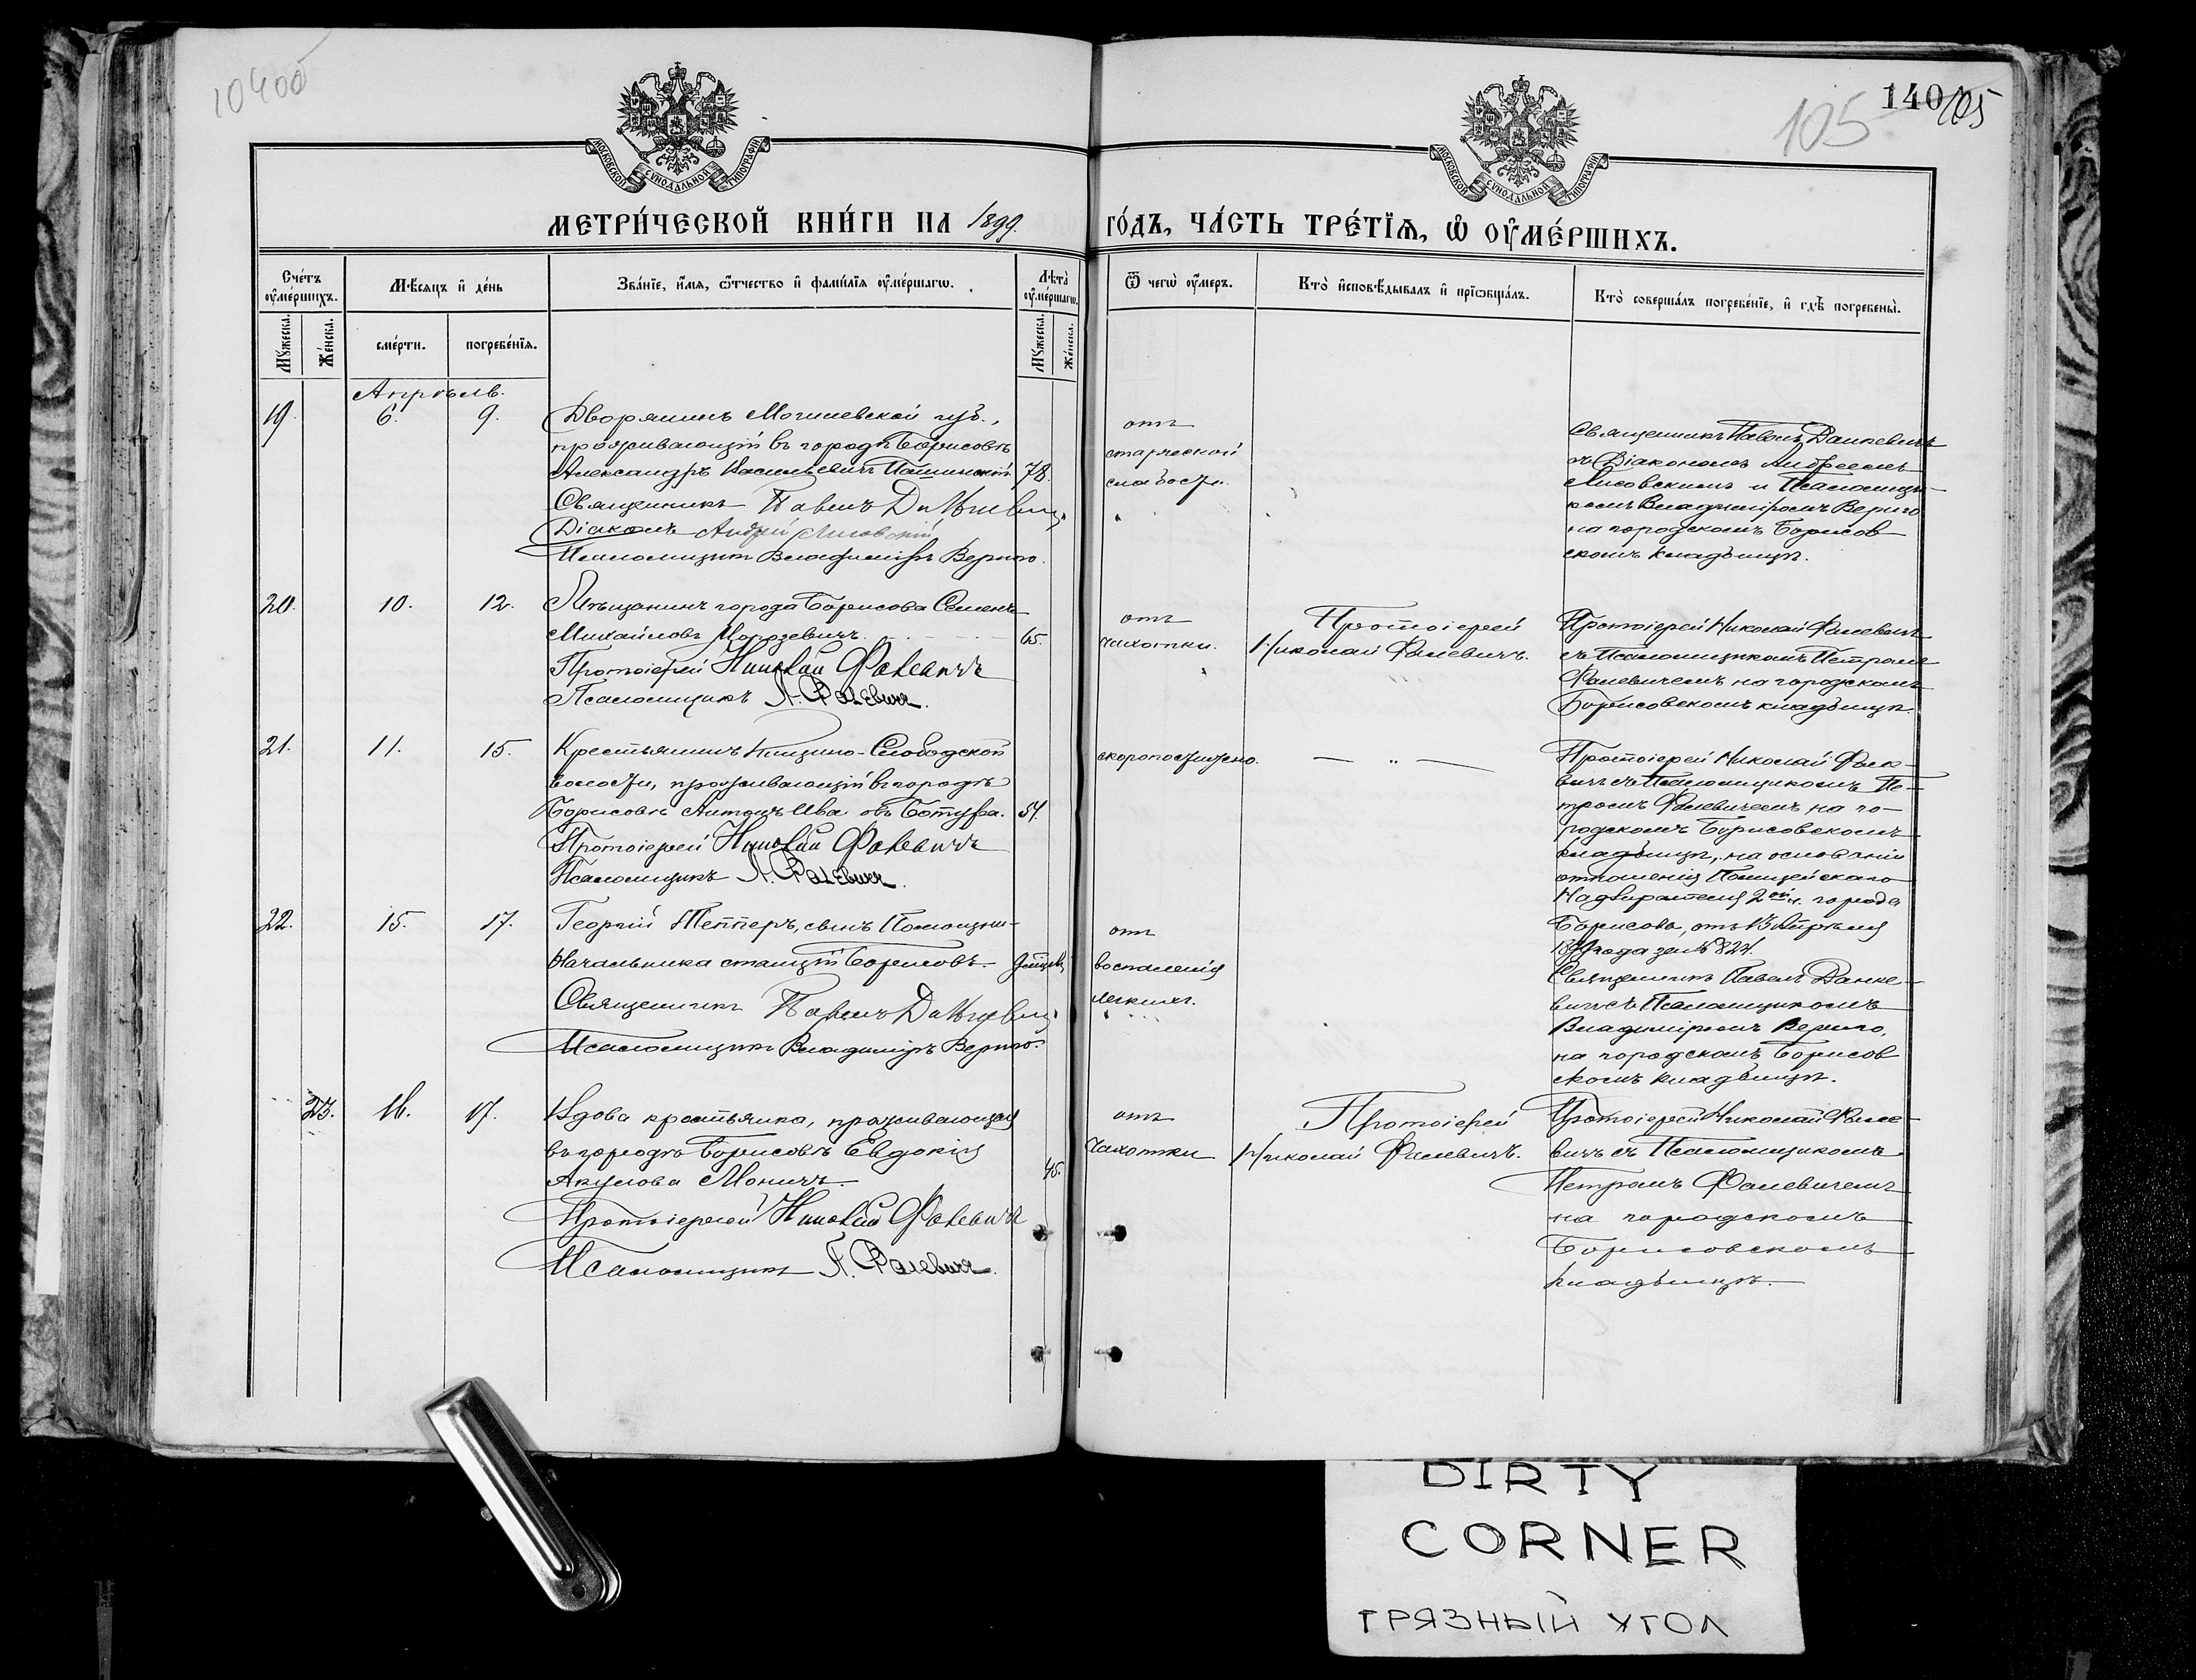 10400
140
105
105
МОСКОВСКОЙ СѴНОДАЛЬНОЙ ТИПОГРАФІИ
МОСКОВСКОЙ СѴНОДАЛЬНОЙ ТИПОГРАФІИ
МЕТРИ́ЧЕСКОЙ КНИ́ГИ НА 1899
ГО́ДЪ, ЧА́СТЬ ТРЕ́ТЇѦ, Ѽ ОУ҆МЕ́РШИХЪ.
Сче́тъ оу҆ме́ршихъ.
Мѣ́сѧцъ и҆ де́нь
Зва́нїе, и҆́мѧ, ѻ҆́тчество и҆ фами́лїѧ оу҆ме́ршагѡ.
Лѣ́та оу҆ме́ршагѡ.
Ѿ чегѡ̀ оу҆́меръ.
Кто̀ и҆сповѣ́дывалъ и҆ прїѡбща́лъ.
Кто̀ соверша́лъ погребе́нїе, и҆ гдѣ̀ погребены̀.
Мꙋ́жеска.
Же́нска.
сме́рти.
погребе́нїѧ.
Мꙋ́жеска.
Же́нска.
Апрѣль.
19. 6. 9. Дворянинъ Могилевской губ.,
проживающій въ городѣ Борисовѣ
Александръ Васильевичъ 78.
Священникъ Павелъ Данкевичъ
Діаконъ Андрей Лисовскій
Псаломщикъ Владиміръ Вериго.
отъ
старческой
слабости.
Священникъ Павелъ Данкевичъ
съ Діакономъ Андреемъ
Лисовскимъ и Псаломщи-
комъ Владиміромъ Вериго
на городскомъ Борисов
скомъ кладбищѣ.
20. 10. 12. Мѣщанинъ города Борисова Семенъ
Михайловъ Морозевичъ 65.
Протоіерей Николай Фалевичъ
Псаломщикъ П. Фалевичъ.
отъ
чахотки.
Протоіерей
Николай Фалевичъ.
Протоіерей Николай Фалевичъ
съ Псаломщикомъ Петромъ
Фалевичемъ на городскомъ
Борисовскомъ кладбищѣ.
21. 11. 15. Крестьянинъ Слободской
волости, проживающій въ городѣ
Борисовѣ Антонъ Ива овъ 54.
Протоіерей Николай Фалевичъ
Псаломщикъ П. Фалевичъ.
скоропостижно.
— „ —
Протоіерей Николай Фале-
вичъ съ Псаломщикомъ Пе-
тромъ Фалевичемъ на го-
родскомъ Борисовскомъ
кладбищѣ, на основаніи
отношенія Полицейскаго
Надзирателя 2ой ч. города
Борисова, отъ 13 Апрѣля
1899 года за № 824.
22. 15. 17. Георгій Теттеръ, сынъ Помощни-
Начальника станціи Борисовъ.
Священникъ Павелъ Данкевичъ
Псаломщикъ Владиміръ Вериго.
отъ
воспаленія
легкихъ.
Священникъ Павелъ Данке-
вичъ съ Псаломщикомъ
Владиміромъ Вериго,
на городскомъ Борисов
скомъ кладбищѣ.
23. 16. 17. Вдова крестьянка, проживающая
въ городѣ Борисовѣ Евдокія
Акулова Моничъ 45.
Протоіерей Николай Фалевичъ
Псаломщикъ П. Фалевичъ.
отъ
чахотки
Протоіерей
Николай Фалевичъ.
Протоіерей Николай Фале-
вичъ съ Псаломщикомъ
Петромъ Фалевичемъ
на городскомъ
Борисовскомъ
кладбищѣ.
DIRTY
CORNER
ГРЯЗНЫЙ УГОЛ